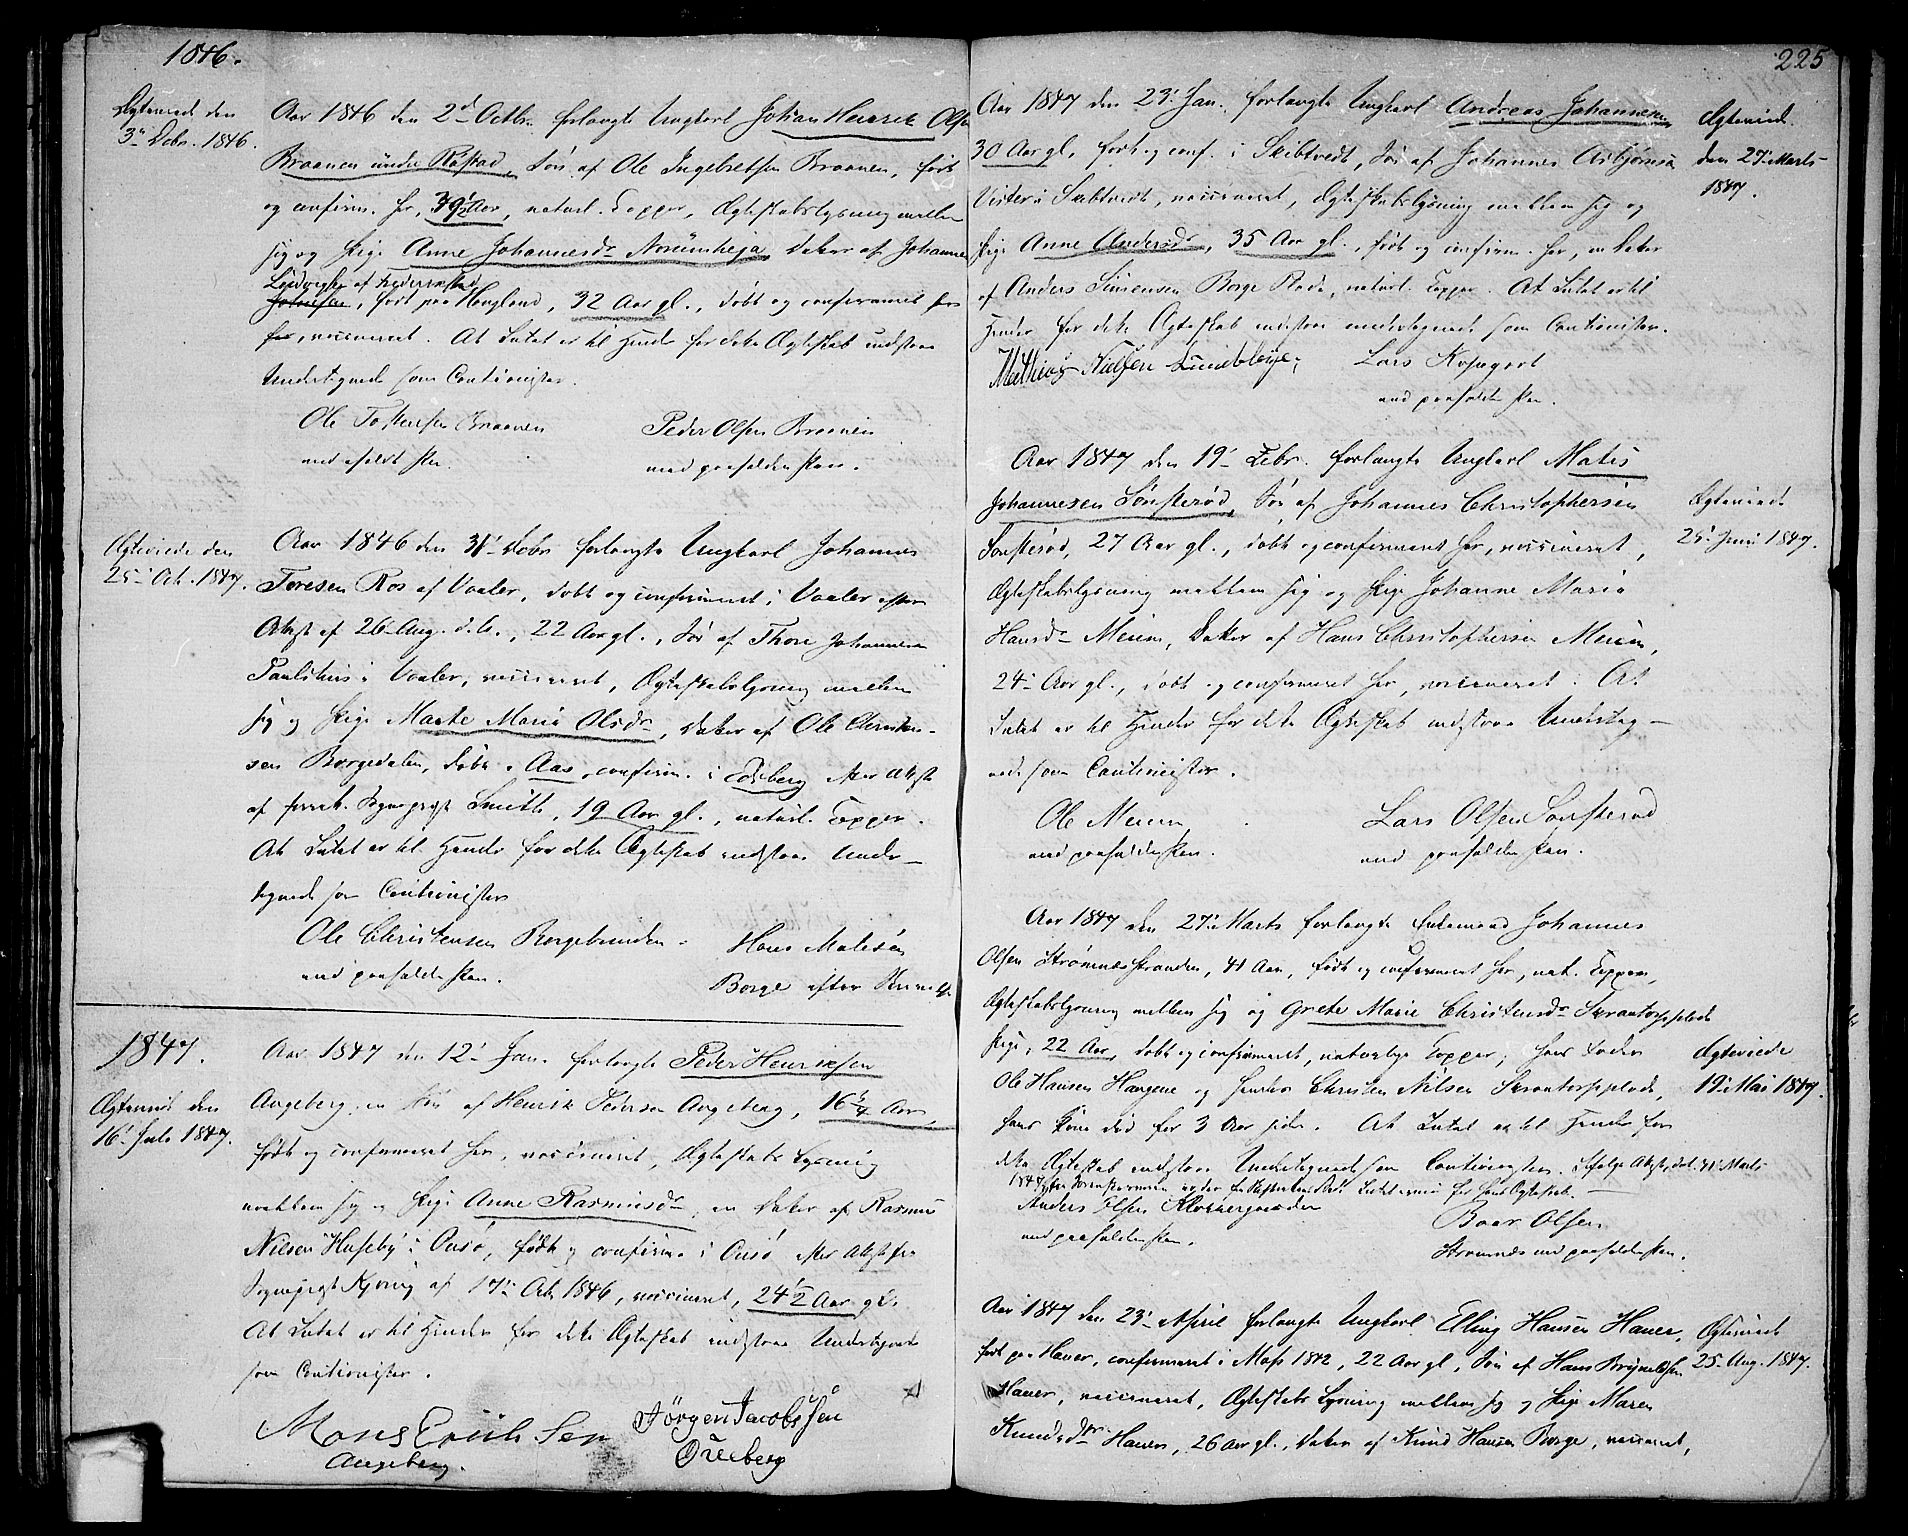 1846.
Ægteviede den
3' Debr. 1846.
Aar 1846 den 2d Octbr. forlangte Ungkarl Johan Henrik Olsen
Braanen undre Rostad, Søn af Ole Ingebretsen Braanen, født
og confirm. her, 39½ Aar, naturl. Copper, Ægteskabslysning mellem
sig og Pige Anne Johannesdr Norumheja, Datter af Johannes
af Frederikstad
født paa Haugland, 32 Aar gl., døbt og confirmeret
her, vaccineret. At Intet er til Hinder for dette Ægteskab indstaae
Undertegnede som Cautionister.
Ole Torstensen Braanen
med paaholden Pen.
Peder Olsen Braanen
med paaholden Pen.
Ægteviede den
25' Oct. 1847.
Aar 1846 den 31' Debr forlangte Ungkarl Johannes
Toresen Ros af Vaaler, døbt og confirmeret i Vaaler efter
Attest af 26 Aug. d. A., 22 Aar gl., Søn af Thore Johannesen
i Vaaler, vaccineret, Ægteskabslysning mellem
sig og Pige Marte Maria Olsdr, Datter af Ole Christen-
sen Borgedalen, døbt i Aas, confirm. i Edsberg efter Attest
af Sognepræst Smith, 19 Aar gl., naturl. Copper.
At Intet er til Hinder for dette Ægteskab indstaae Under-
tegnede som Cautionister
Ole Christensen Borgebunden
med paaholden Pen.
Hans Matisen
Borge
1847.
Ægteviede den
16' Juli 1847.
Aar 1847 den 12' Jan. forlangte Peder Henriksen
Augeberg, en Søn af Henrik Pedersen Augeberg, Aar,
født og confirmeret her, vaccineret, Ægteskabs Lysning
mellem sig og Pige Anne Rasmusdr, en Datter af Rasmus
Nilsen Huseby i Onsø, født og confirm. i Onsø efter Attest fra
Sognepræst Kjøning af 17' Oct. 1846, vaccineret, 24½ Aar gl.
At Intet er til Hinder for dette Ægteskab indstaae Undertegnede
som Cautionister.
Mons Erichsen
Augeberg.
Jørgen Jacobssen
Øreberg
225
Aar 1847 den 23' Jan. forlangte Ungkarl Andreas Johannesen
30 Aar gl, født og conf. i Skibtvedt, Søn af Johannes Asbjørnsen
Vister i Skibtvedt, vaccineret, Ægteskabslysning mellem sig og
Pige Anne Andersdr, 35 Aar gl., født og confirm. her, en Datter
af Anders Simensen Borge Røde, naturl. Copper. At Intet er til
Hinder for dette Ægteskab indstaae undertegnede som Cautionister.
Mathias Nielsen Lundebeye;
Lars Kopegort
med paaholden Pen.
Ægteviede
den 27' Marts
1847.
Aar 1847 den 19' Febr. forlangte Ungkarl Matis
Johannesen Sønsterød, Søn af Johannes Christophersen
Sønsterød, 27 Aar gl., døbt og confirmeret her, vaccineret,
Ægteskabslysning mellem sig og Pige Johanne Maria
Hansdr Meum, Datter af Hans Christophersen Meum,
24 Aar gl., døbt og confirmeret her, vaccineret. At
Intet er til Hinder for dette Ægteskab indstaae Underteg-
nede som Cautionister.
Ole Meum
med paaholden Pen.
Lars Olsen Sønsterød
med paaholden Pen.
Ægteviede
25' Juni 1847.
Aar 1847 den 27' Marts forlangte Enkemand Johannes
Olsen Strømnesstranden, 41 Aar, født og confirmeret her, nat. Copper,
Ægteskabslysning mellem sig og Grete Marie Christensdr Skrantorpplads
Pige, 22 Aar, døbt og confirmeret, naturlige Copper, hans Fader
Ole Hansen Haugene og hendes Christen Nilsen Skrantorpplads,
hans Kone død for 3 Aar siden. At Intet er til Hinder for
dette Ægteskab indstaae Undertegnede som Cautionister. Ifølge Attest, dat. Marts
1847 Intet er til for hans Ægteskab.
Anders Olsen Klostergaarden
med paaholden Pen.
Baar Olsen
Strømnæs med paaholden Pen.
Ægteviede
19' Mai 1847.
Aar 1847 den 23' April forlangte Ungkarl Elling Hansen Hauer,
født paa Hauer, confirmeret i Moss 1842, 22 Aar gl, Søn af Hans Brynildsen
Hauer, vaccineret, Ægteskabs Lysning mellem sig og Pige Maren
Knudsdtr Hauer, 26 Aar gl., Datter af Knud Hansen Borge, vaccineret,
Ægteviede
25' Aug. 1847.